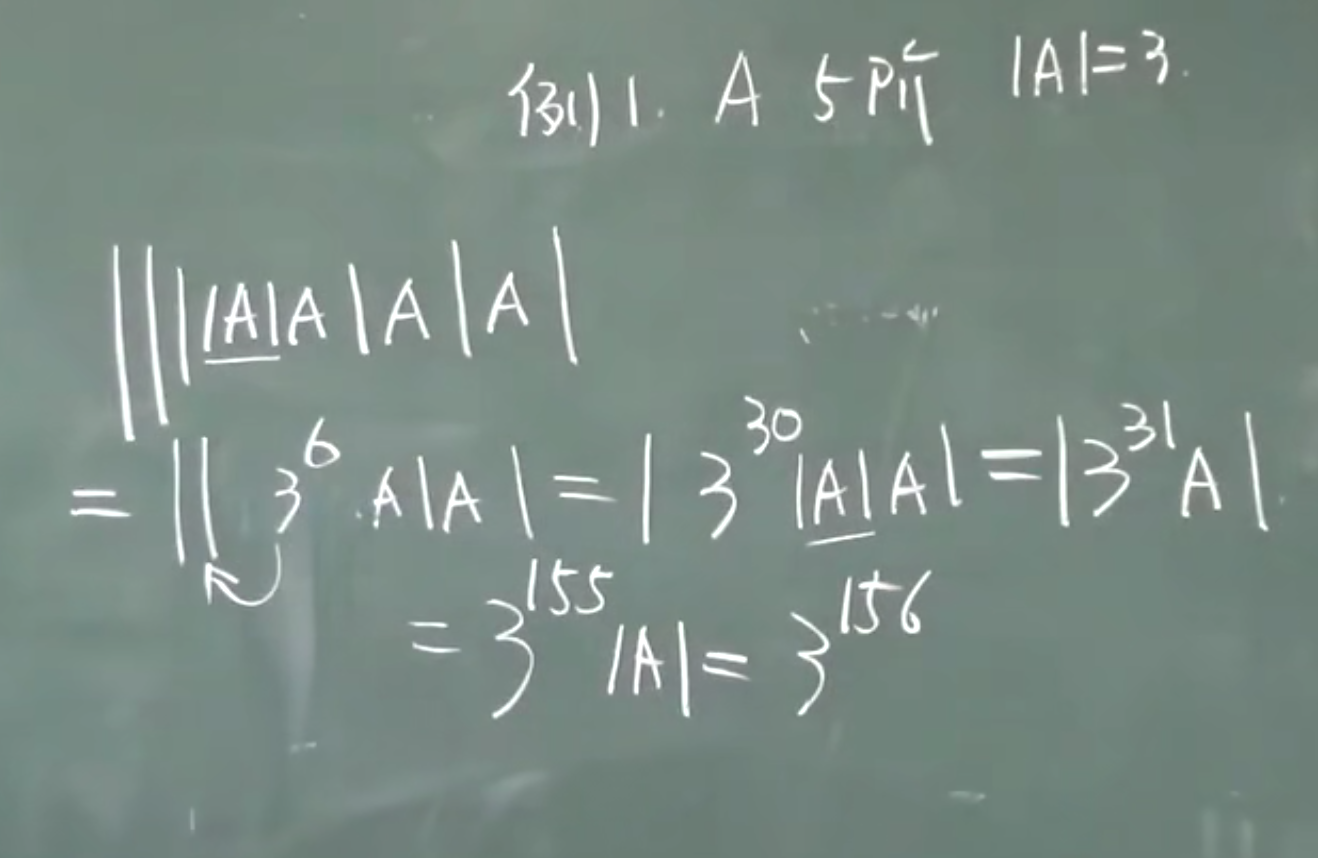 例1. A 5阶 |A|=3.
||||A|A|A|A|
=|| 3⁶·A|A|=|3³⁰|A|A|=|3³¹A|.
=3¹⁵⁵|A|=3¹⁵⁶